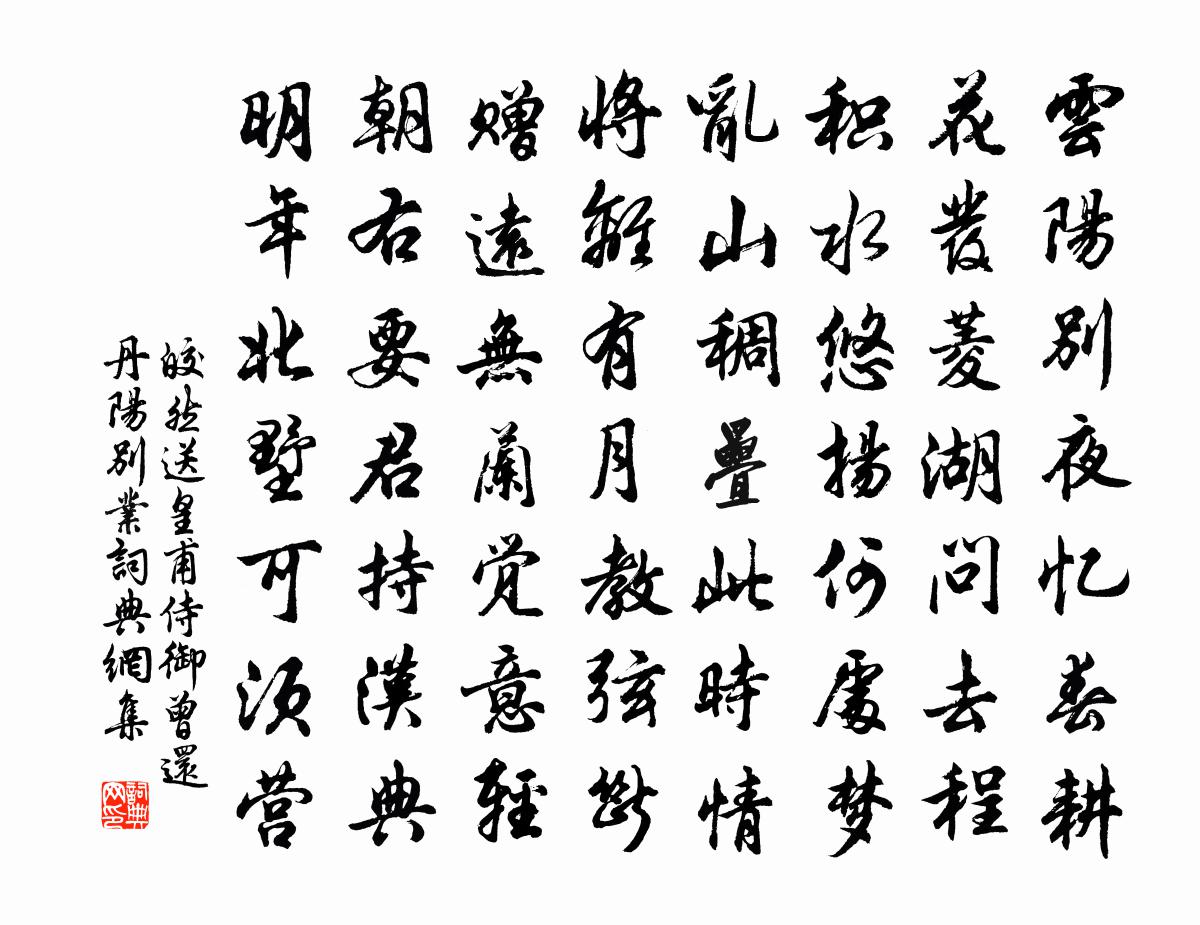 雲陽別夜忆春耕
花發菱湖問去程
积水悠揚何處梦
亂山稠疊此時情
将離有月教弦斷
赠遠無蘭觉意輕
朝右要君持漢典
明年北墅可须营
皎然送皇甫侍御曾還
丹陽別業詞典網集
詞典网印